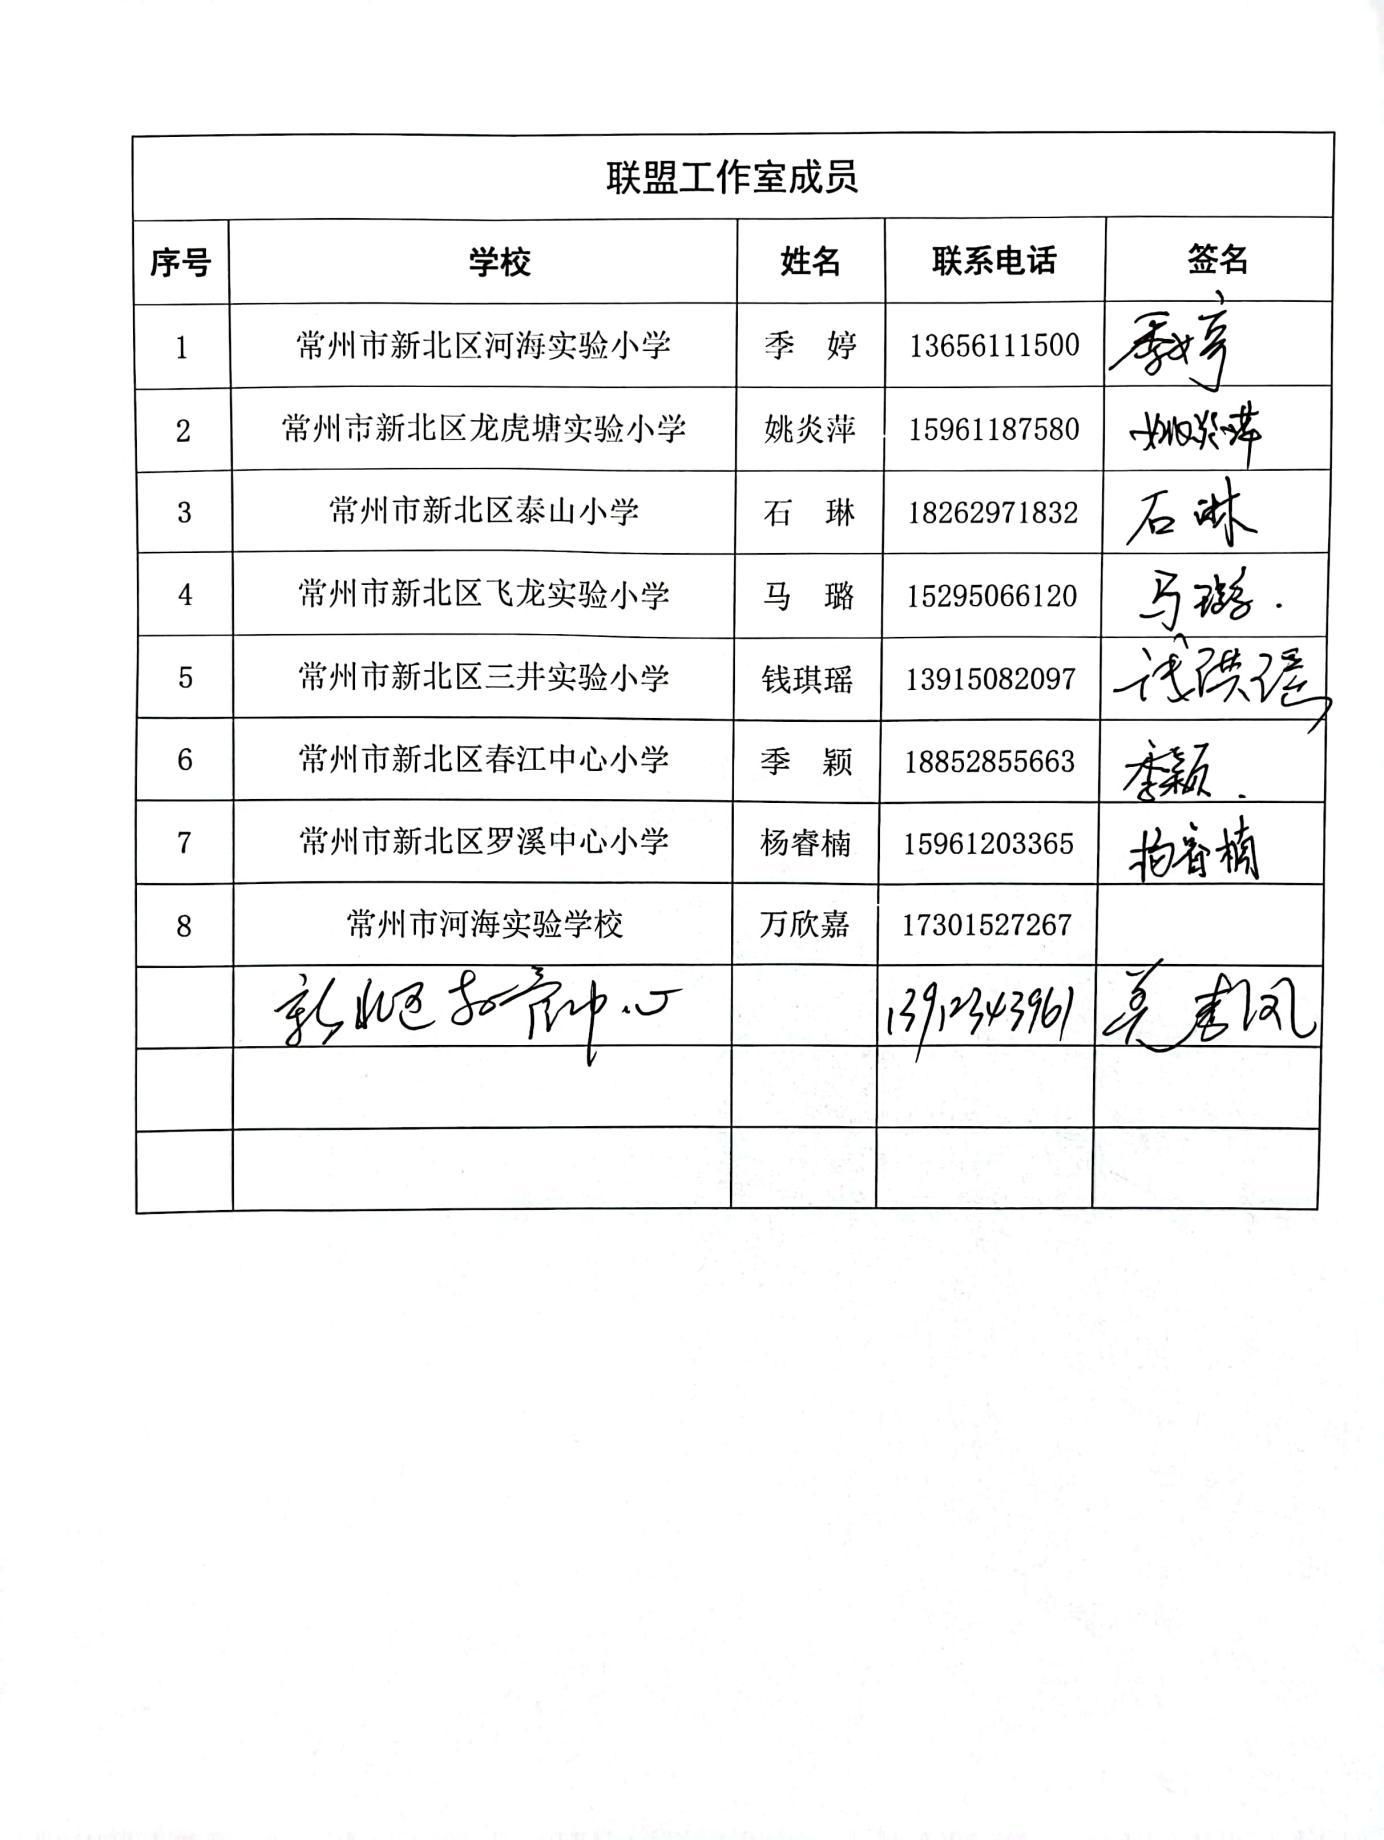 联盟工作室成员
序号 学校 姓名 联系电话 签名
1 常州市新北区河海实验小学 季 婷 13656111500 季婷
2 常州市新北区龙虎塘实验小学 姚炎萍 15961187580 姚炎萍
3 常州市新北区泰山小学 石 琳 18262971832 石琳
4 常州市新北区飞龙实验小学 马 璐 15295066120 马璐.
5 常州市新北区三井实验小学 钱琪瑶 13915082097 钱琪瑶
6 常州市新北区春江中心小学 季 颖 18852855663 季颖.
7 常州市新北区罗溪中心小学 杨睿楠 15961203365 杨睿楠
8 常州市河海实验学校 万欣嘉 17301527267
新北区教管中心 13912343961 秀凤